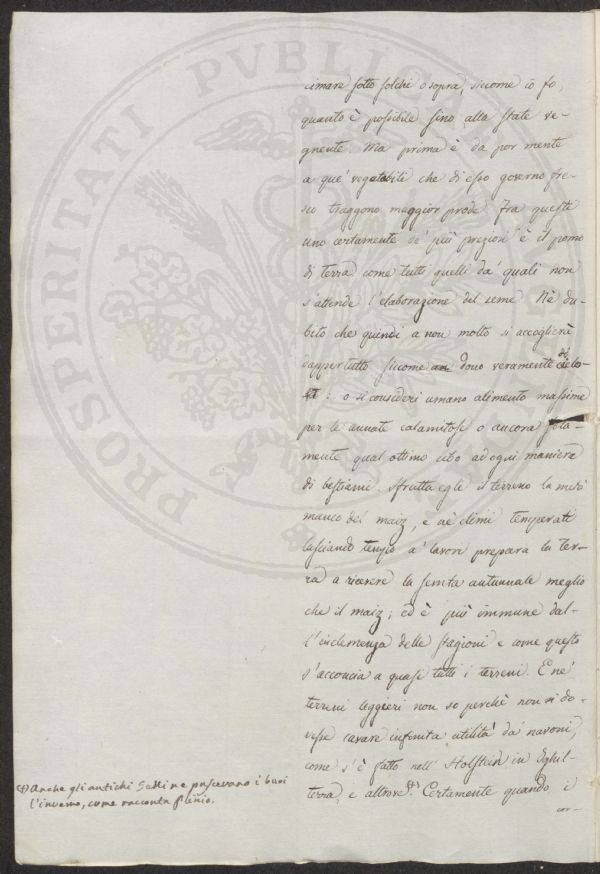 cimare sotto solchi o sopra, siccome io fo,
quanto è possibile sino alla state ve-
gnente. Ma prima è da por mente
a que' vegetabili che di esso governo fre-
sco traggono maggior prode. Fra questi
uno certamente de' più preziosi è il pomo
di terra come tutti quelli da' quali non
s'attende l'elaborazione del seme. Nè du-
bito che quindi a non molto si accoglierà
dappertutto siccome dono veramente
: o si consideri umano alimento massime
per le annate calamitose o ancora sola-
mente qual ottimo cibo ad ogni maniera
di bestiami. Sfrutta egli il terreno la metà
manco del maiz, e ne' climi temperati
lasciando tempo a' lavori prepara la ter-
ra a ricevere la semta autunnale meglio
che il maiz; ed è più immune dal-
l'inclemenza delle stagioni e come questo
s'acconcia a quasi tutti i terreni. E ne'
terreni leggieri non so perchè non si do-
vesse cavare infinita utilità da' navoni,
come s'è fatto nell'Holstein in Inghil-
terra, e altrove.(*) Certamente quando i
cor-
(*) Anche gli antichi Galli ne pascevano i buoi
l'inverno, come racconta Plinio.
PROSPERITATI PVBLICAE